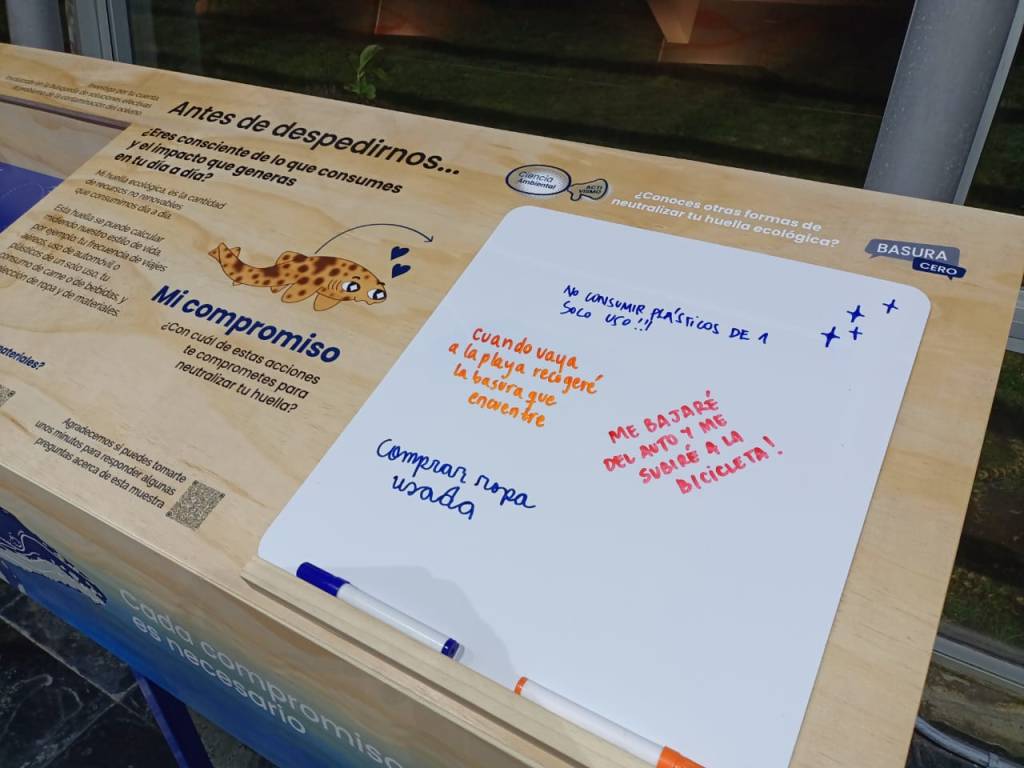 Investiga por tu cuenta
Involúcrate en la búsqueda de soluciones efectivas
al problema de la contaminación del océano
Antes de despedirnos...
¿Eres consciente de lo que consumes
y el impacto que generas
en tu día a día?
Mi huella ecológica, es la cantidad
de recursos no renovables
que consumimos día a día.
Esta huella se puede calcular
midiendo nuestro estilo de vida,
por ejemplo: tu frecuencia de viajes
aéreos, uso de automóvil o
plásticos de un solo uso, tu
consumo de carne o de bebidas, y
elección de ropa y de materiales.
materiales?
Mi compromiso
¿Con cuál de estas acciones
te comprometes para
neutralizar tu huella?
Agradecemos si puedes tomarte
unos minutos para responder algunas
preguntas acerca de esta muestra
Ciencia
Ambiental
ACTI
VISMO
¿Conoces otras formas de
neutralizar tu huella ecológica?
BASURA
CERO
NO CONSUMIR PLÁSTICOS DE 1
SOLO USO!!!
Cuando vaya
a la playa recogeré
la basura que
encuentre
ME BAJARÉ
DEL AUTO Y ME
SUBIRÉ A LA
BICICLETA!
Comprar ropa
usada
Cada compromiso
es necesario